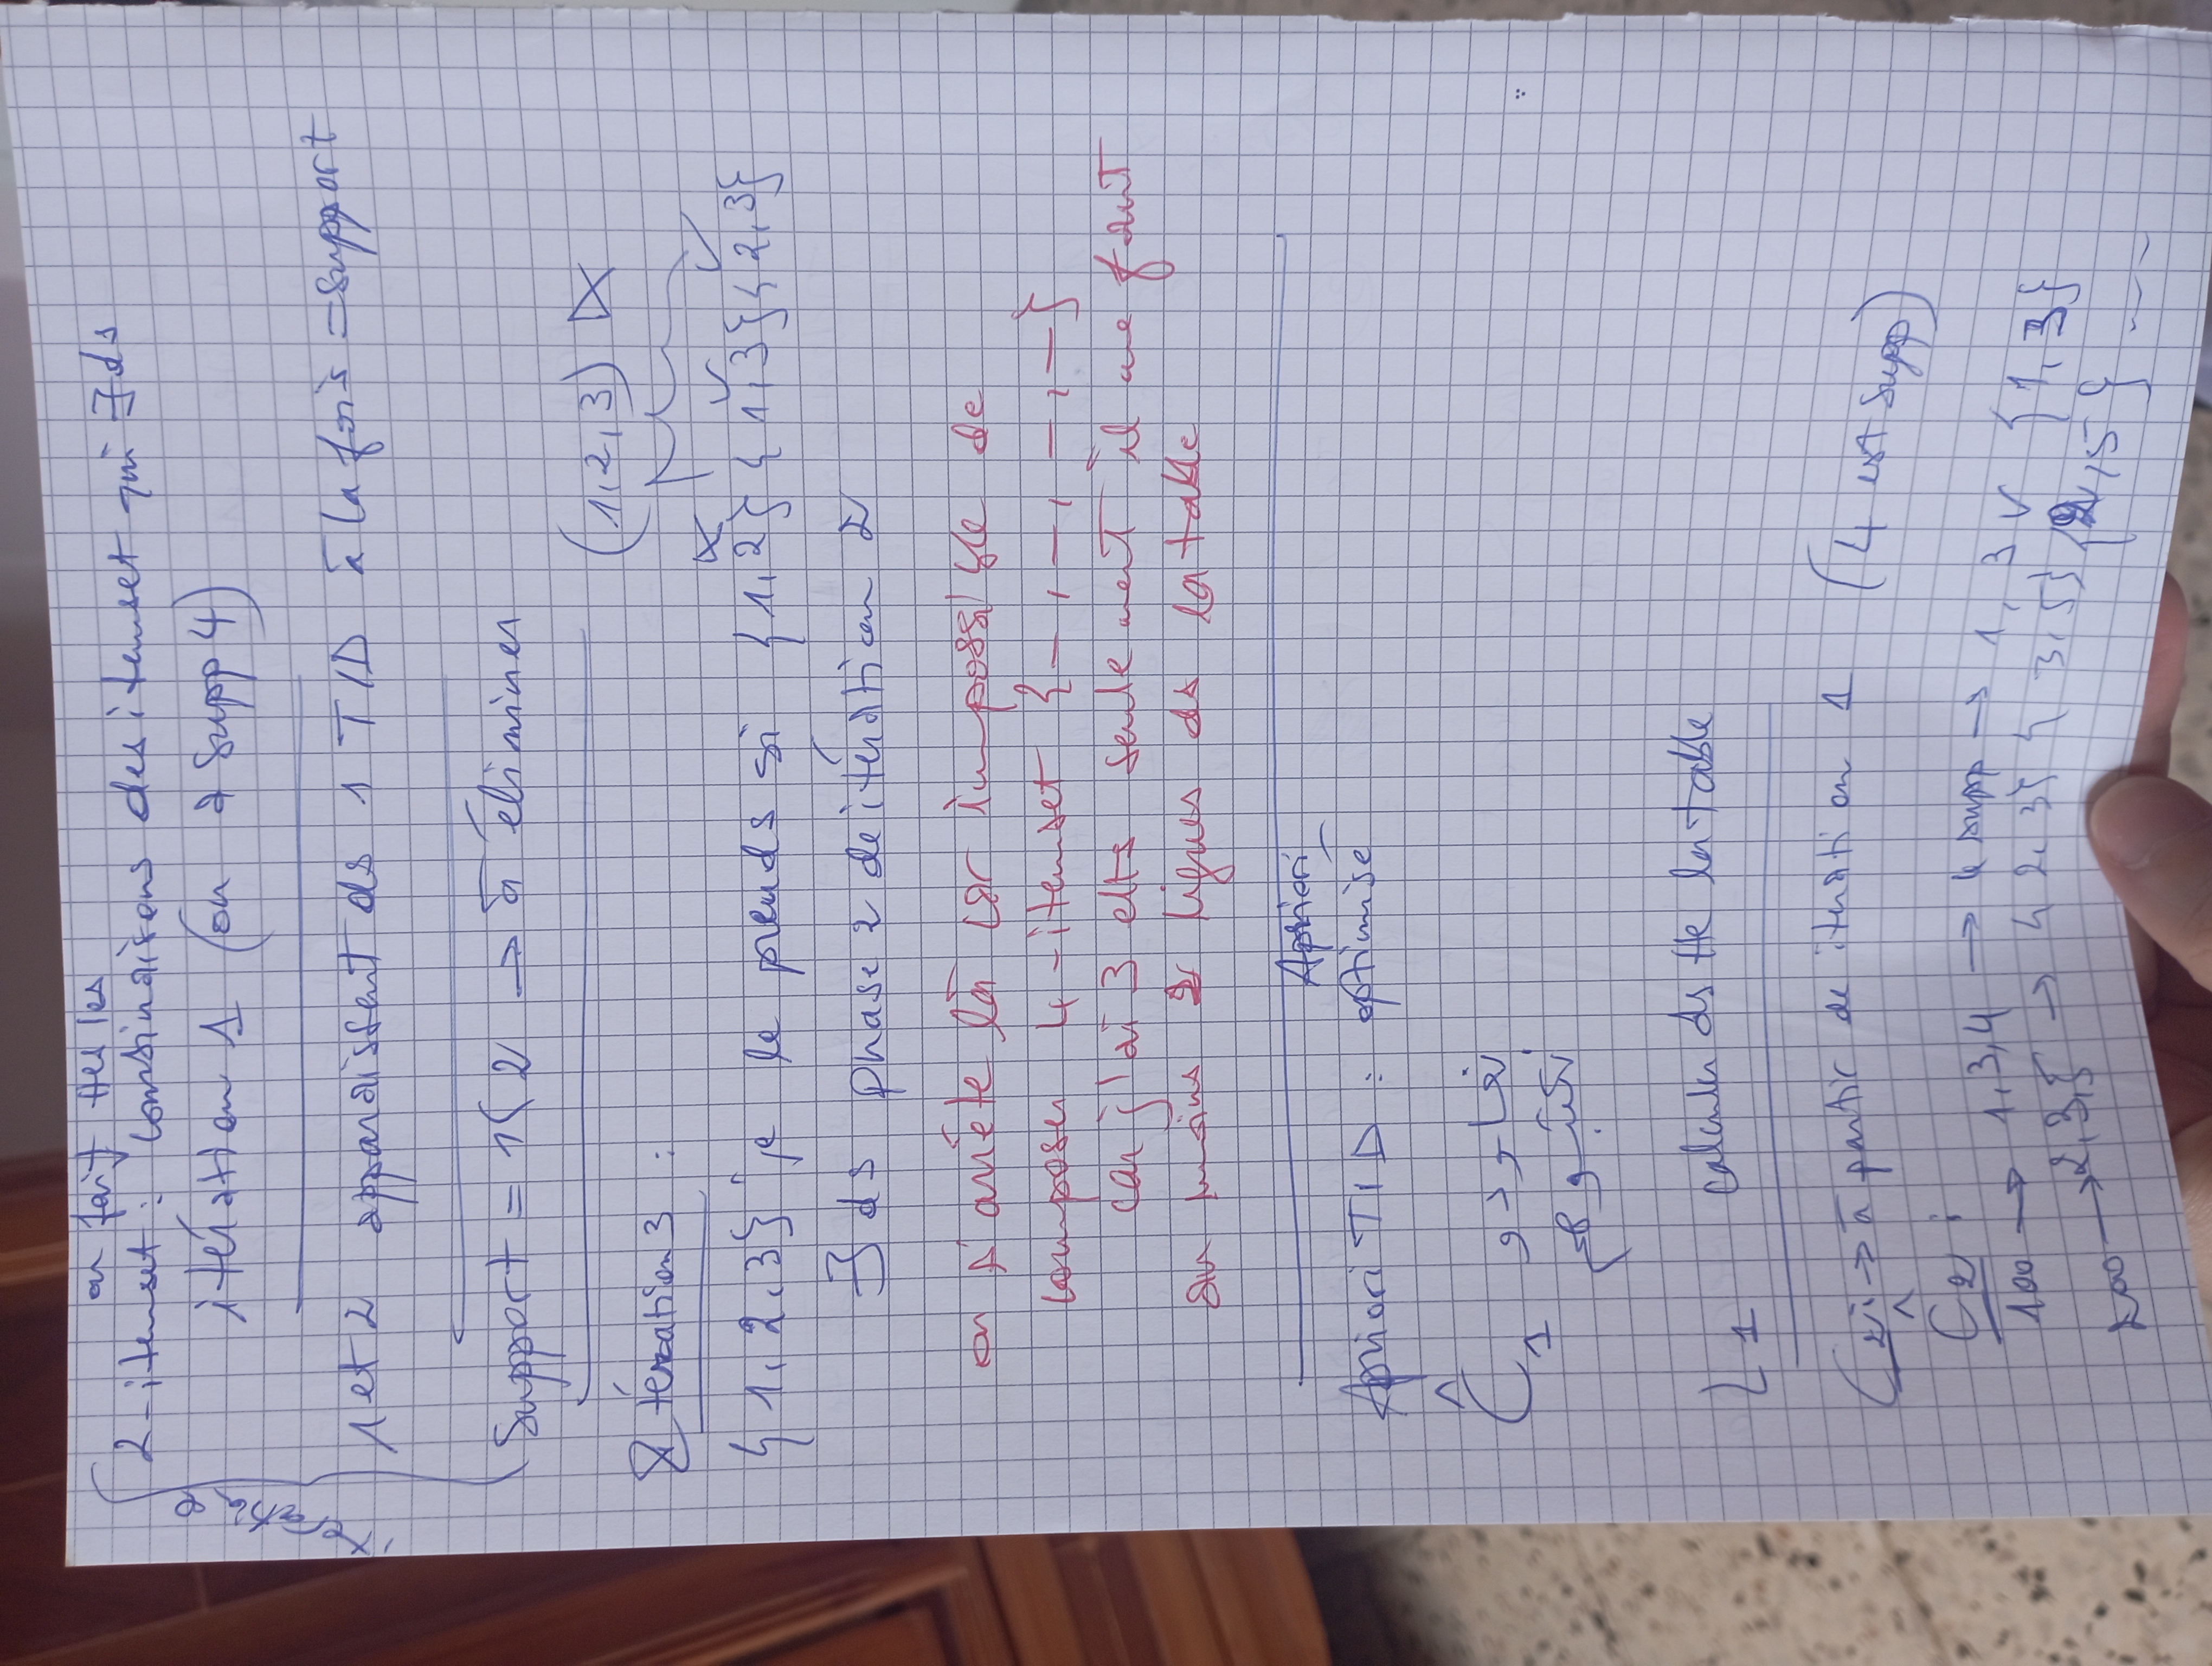 on fait ttes les
2-itemset : combinaisons des itemset qui ∃ ds
itération 1 (on a supp 4)
itération 2
1 et 2 apparaissent ds 1 TID à la fois = support
Support = 1 < 2 → à éliminer
(1,2,3)
Itération 3 :
{1,2,3} je le prends si {1,2} {1,3} {2,3}
∃ ds phase 2 de itération 2
on s'arrête là car impossible de
composer 4-itemset {—,—,—,—}
car j'ai 3 elts seulement il me faut
au moins 2 lignes ds la table
Apriori
Apriori TID : optimisé
Ĉ1
L1 calculer ds tte la table
C2 : → à partir de itération 1 (4 est supp)
Ĉ2 :
100 → 1,3,4 → 4 supp → 1, 3 ✓ {1,3}
200 → 2,3,5 → {2,3} {3,5} {2,5} ---